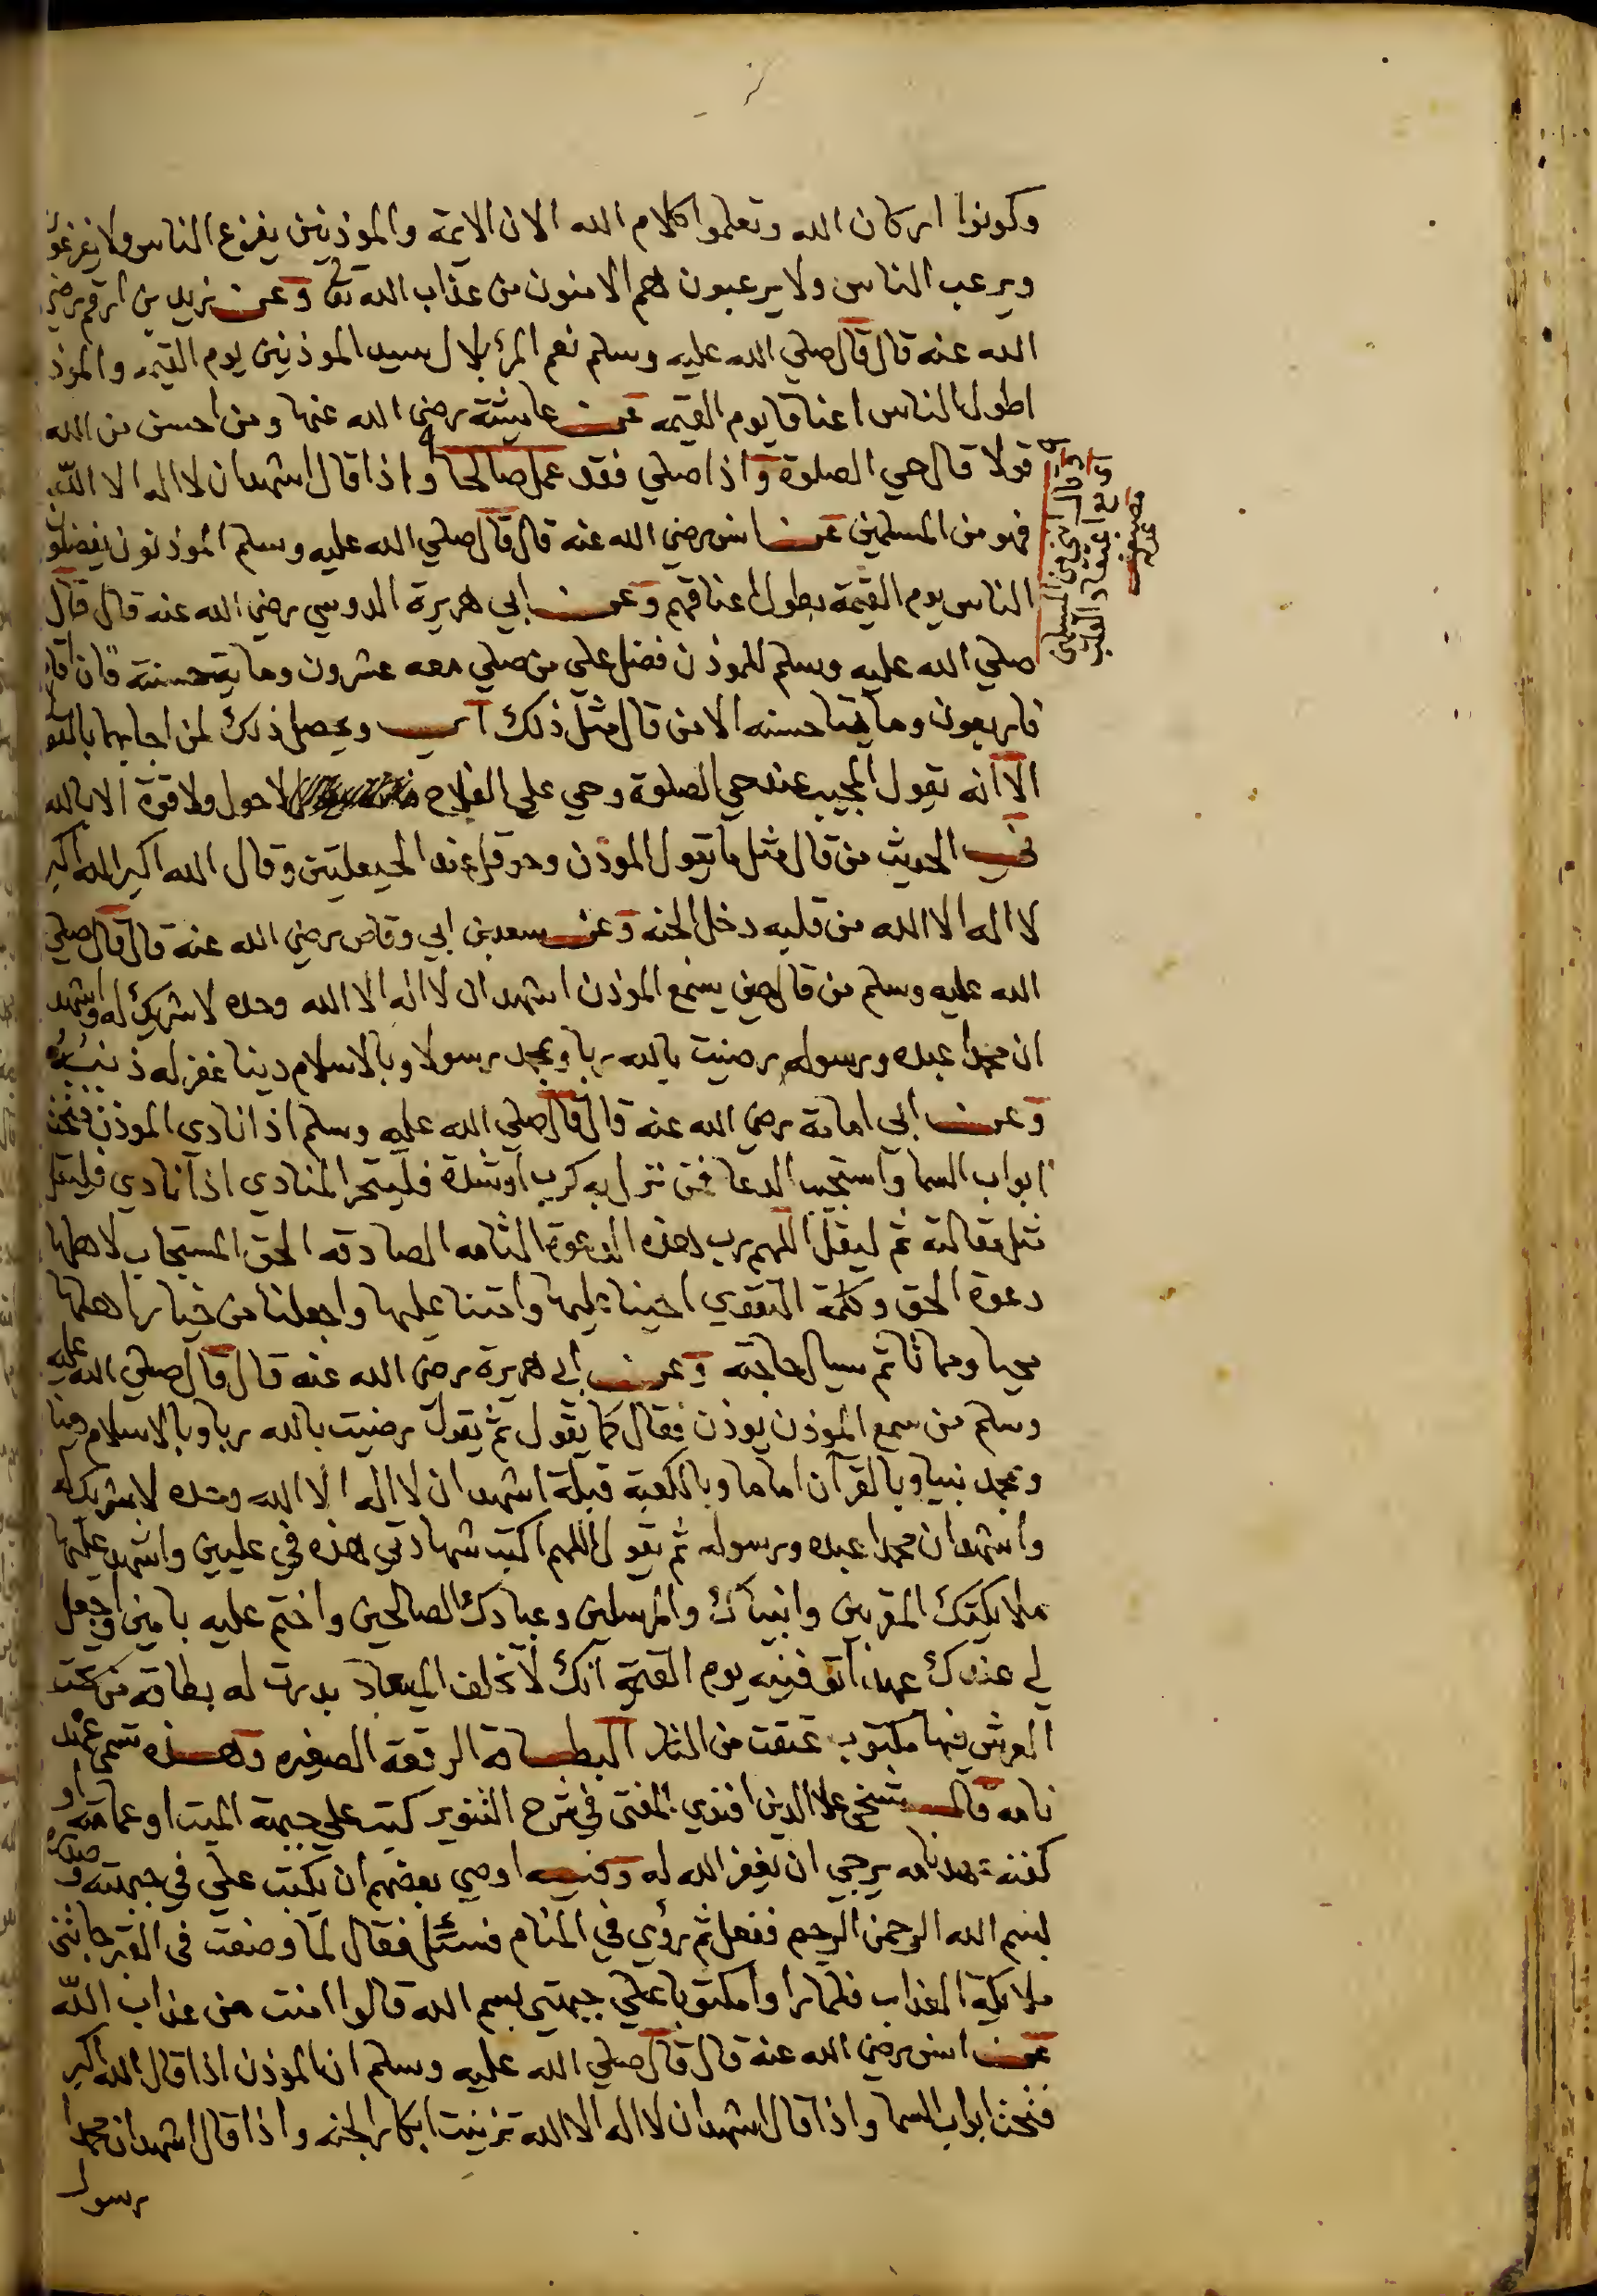 وكونوا اركان الله وتعلموا كلام الله الا ان الايمة والموذنين يفزع الناس ولا يفزعون
ويرعب الناس ولا يرعبون هم الامنون من عذاب الله تعا وعن زيد بن ارقم رضي
الله عنه قال قال صلي الله عليه وسلم نعم المرؤ بلال سيد الموذنين يوم القيمه والموذ
اطول الناس اعناقا يوم القيمه عن عايشة رضي الله عنها ومن احسن من الله
قولا قال حي الصلوة واذا صلي فقد عمل صالحا واذا قال اشهد ان لا اله الا الله
فهو من المسلمين عن انس رضي الله عنه قال قال صلي الله عليه وسلم الموذنون يفضلون
الناس يوم القيمة بطول اعناقهم وعن ابي هريرة الدوسي رضي الله عنه قال قال
صلي الله عليه وسلم للموذن فضل علي من صلي معه عشرون وماية حسنة فان اقام
فاربعون ومايتا حسنه الا من قال مثل ذلك اي ويحصل ذلك لمن اجابهما بالقو
الا انه يقول المجيب عند حي الصلوة وحي علي الفلاح لا حول ولا قوة الا بالله
في الحديث من قال مثل ما يقول الموذن وحوقل عند الحيعلتين وقال الله اكبر الله اكبر
لا اله الا الله من قلبه دخل الجنه وعن سعد بن ابي وقاص رضي الله عنه قال قال صلي
الله عليه وسلم من قال حين يسمع الموذن اشهد ان لا اله الا الله وحده لا شريك له واشهد
ان محمدا عبده ورسوله رضيت بالله ربا وبمحمد رسولا وبالاسلام دينا غفر له ذنبه
وعن ابي امامة رضي الله عنه قال قال صلي الله عليه وسلم اذا نادي الموذن فتحت
ابواب السما واستجيب الدعا فمن نزل به كرب او شدة فليتحر المنادي اذا نادي فليقل
مثل مقالته ثم ليقل اللهم رب هذه الدعوة التامه الصادقه الحق المستجاب لاهلها
دعوة الحق وكلمة التقوي احينا عليها وامتنا عليها واجعلنا من خيار اهلها
محيا ومماتا ثم يسال حاجته وعن ابي هريرة رضي الله عنه قال قال صلي الله عليه
وسلم من سمع الموذن يوذن فقال كما يقول ثم يقول رضيت بالله ربا وبالاسلام دينا
وبمحمد نبيا وبالقرآن اماما وبالكعبة قبلة اشهد ان لا اله الا الله وحده لا شريك له
واشهد ان محمدا عبده ورسوله ثم يقول اللهم اكتب شهادتي هذه في عليين واشهد عليها
ملايكتك المقربين وانبياك والمرسلين وعبادك الصالحين واختم عليه بامين واجعل
لي عندك عهدا توفنيه يوم القيمة انك لا تخلف الميعاد بدرت له بطاقه من تحت
العرش فيها مكتوب عتقت من النار البطاقة الرقعة الصغيره وهذه تسمي عهد
نامه قال شيخي علا الدين افندي المفتي في شرح التنوير كتب علي جبهة الميت او عمامته او
كفنه عهد نامه يرجي ان يغفر الله له وفيه اوصي بعضهم ان يكتب علي في جبهته وصدره
بسم الله الرحمن الرحيم ففعل ثم رؤي في المنام فسئل فقال لما وضعت في القبر جاءتني
ملايكة العذاب فلما راوا مكتوبا علي جبهتي بسم الله قالوا امنت من عذاب الله
عن انس رضي الله عنه قال قال صلي الله عليه وسلم ان الموذن اذا قال الله اكبر
فتحت ابواب السما واذا قال اشهد ان لا اله الا الله تزينت ابكار الجنه واذا قال اشهد ان محمدا
رسول